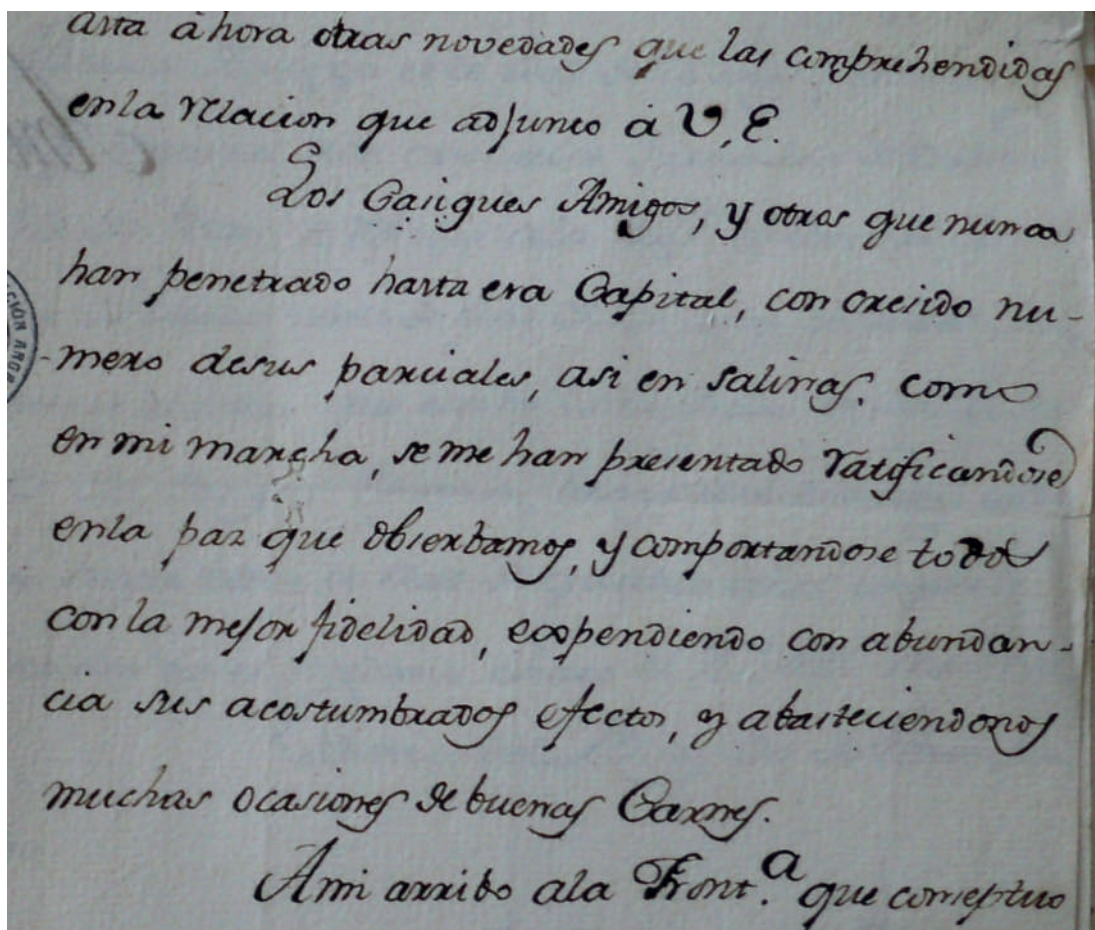 asta ahora otras novedades que las comprehendidas
en la relacion que adjunto à V, E.
Los Casiques Amigos, y otros que nunca
han penetrado hasta esa Capital, con cresido nu-
mero desus parciales, asi en Salinas, como
en mi marcha, se me han presentado ratificandose
enla paz que obserbamos, y comportandose todos
con la mejor fidelidad, expendiendo con abundan-
cia sus acostumbrados efectos, y abasteciendonos
muchas ocasiones de buenas Carnes.
Ami arribo ala Front.a que conceptuo
CIÓN ARGE